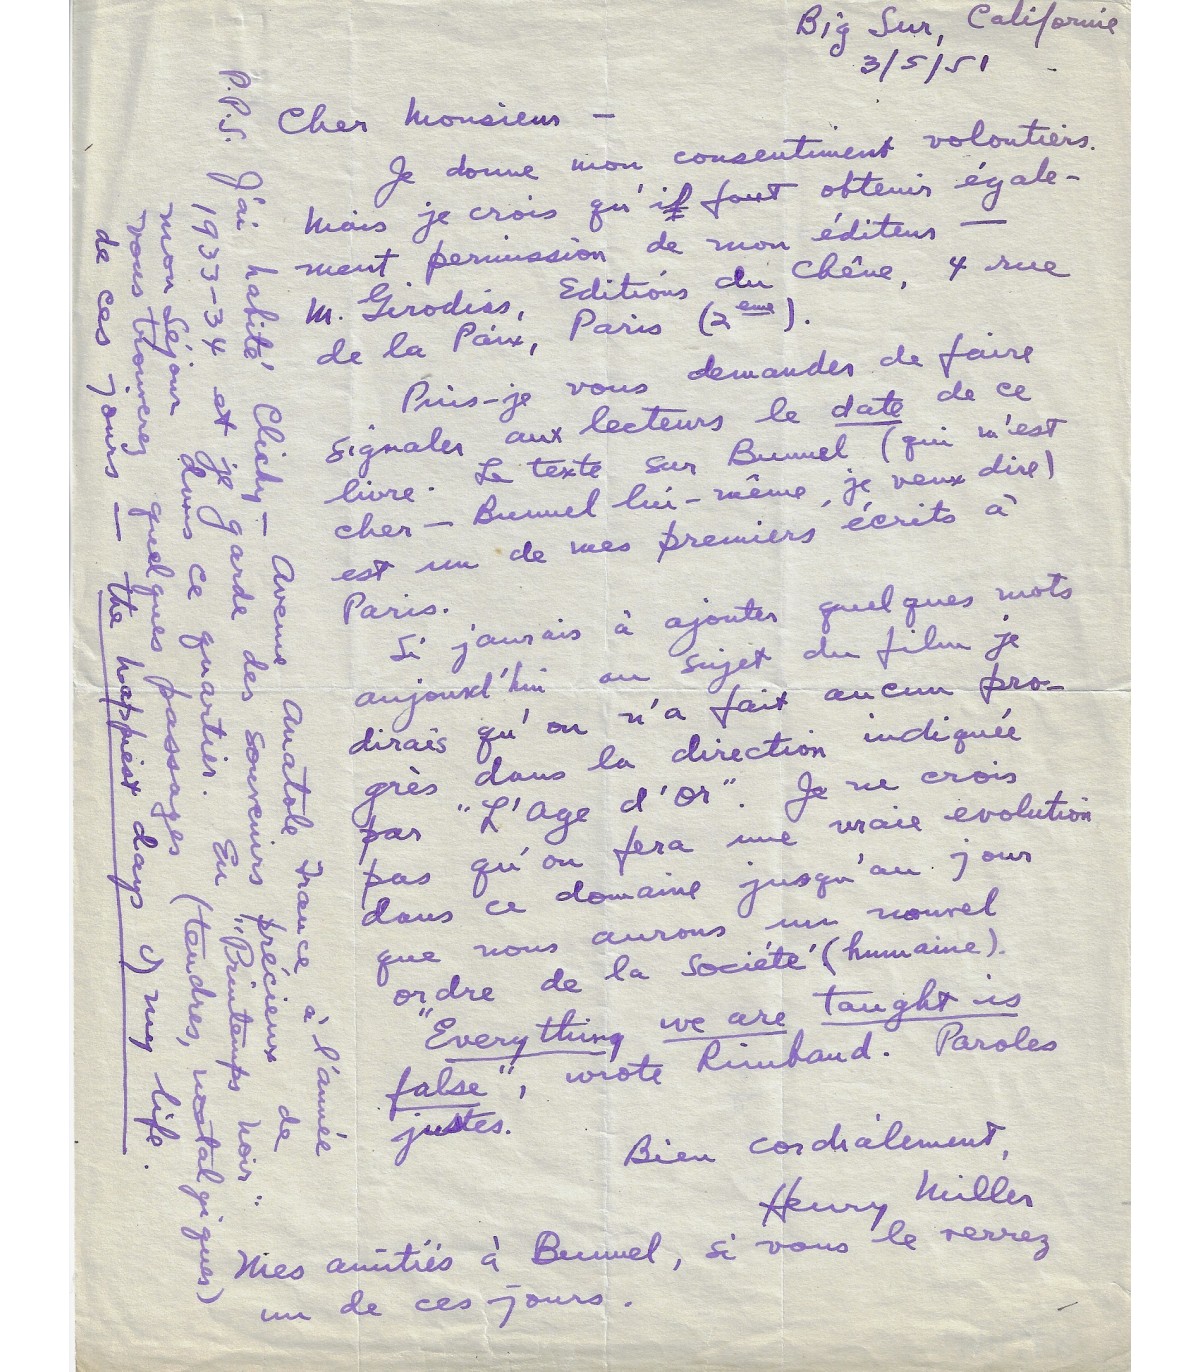 Big Sur, Californie
3/5/51
Cher Monsieur —
Je donne mon consentiment volontiers.
Mais je crois qu'il faut obtenir égale-
ment permission de mon éditeur —
M. Girodias, Editions du Chêne, 4 rue
de la Paix, Paris (2eme).
Puis-je vous demander de faire
signaler aux lecteurs le date de ce
livre. Le texte sur Bunuel (qui m'est
cher — Bunuel lui-même, je veux dire)
est un de mes premiers écrits à
Paris.
Si j'aurais à ajouter quelques mots
aujourd'hui au sujet du film je
dirais qu'on n'a fait aucun pro-
grès dans la direction indiquée
par "L'Age d'Or". Je ne crois
pas qu'on fera une vraie evolution
dans ce domaine jusqu'au jour
que nous aurons un nouvel
ordre de la Société (humaine).
"Everything we are taught is
false", wrote Rimbaud. Paroles
justes.
Bien cordialement,
Henry Miller
Mes amitiés à Bunuel, si vous le verrez
un de ces jours.
P.P.S. J'ai habité Clichy — Avenue Anatole France à l'année
1933-34 et je garde des souvenirs précieux de
mon séjour dans ce quartier. En "Printemps Noir"
vous trouverez quelques passages (tendres, nostalgiques)
de ces jours — the happiest days of my life.